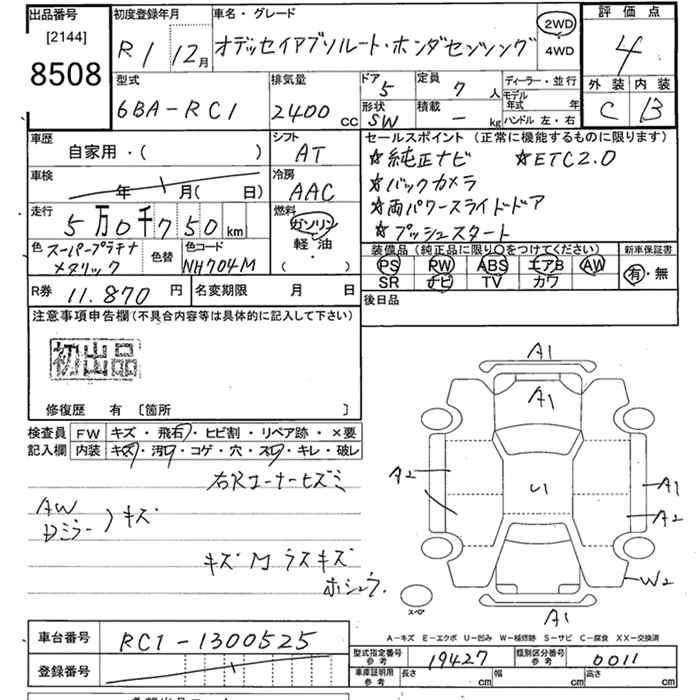 出品番号
[2144]
8508
初度登録年月
R1 12月
車名・グレード
オデッセイアブソルート・ホンダセンシング
2WD
4WD
評価点
4
外装 内装
C B
型式
6BA-RC1
排気量
2400 cc
ドア
5
定員
7 人
形状
SW
積載
- kg
ディーラー・並行
モデル年式 年
ハンドル 左・右
車歴
自家用・( )
シフト
AT
車検
年 月( 日)
冷房
AAC
走行
5万0千750km
燃料
ガソリン
軽・油
( )
色
スーパープラチナ
メタリック
色替
色コード
NH704M
セールスポイント(正常に機能するものに限ります)
☆純正ナビ ☆ETC2.0
☆バックカメラ
☆両パワースライドドア
☆プッシュスタート
装備品(純正品に限り○をつけてください)
PS PW ABS エアB AW
SR ナビ TV カワ
新車保証書
有・無
R券 11.870 円
名変期限 月 日
後日品
注意事項申告欄(不具合内容等は具体的に記入して下さい)
初出品
修復歴 有 [箇所 ]
検査員
記入欄
FW キズ・飛石・ヒビ割・リペア跡・×要
内装 キズ・汚れ・コゲ・穴・スレ・キレ・破レ
右Rコーナーヒズミ
AW
Dミラー
キズ
キズM ラスキズ
ホシュウ
A1
A1
A2
U1
A1
A2
W2
A1
スペア
A-キズ E-エクボ U-凹み W-補修跡 S-サビ C-腐食 XX-交換済
車台番号 RC1-1300525
登録番号
型式指定番号 参考 19427
類別区分番号 参考 0011
車庫証明用 参考 長さ cm 幅 cm 高さ cm